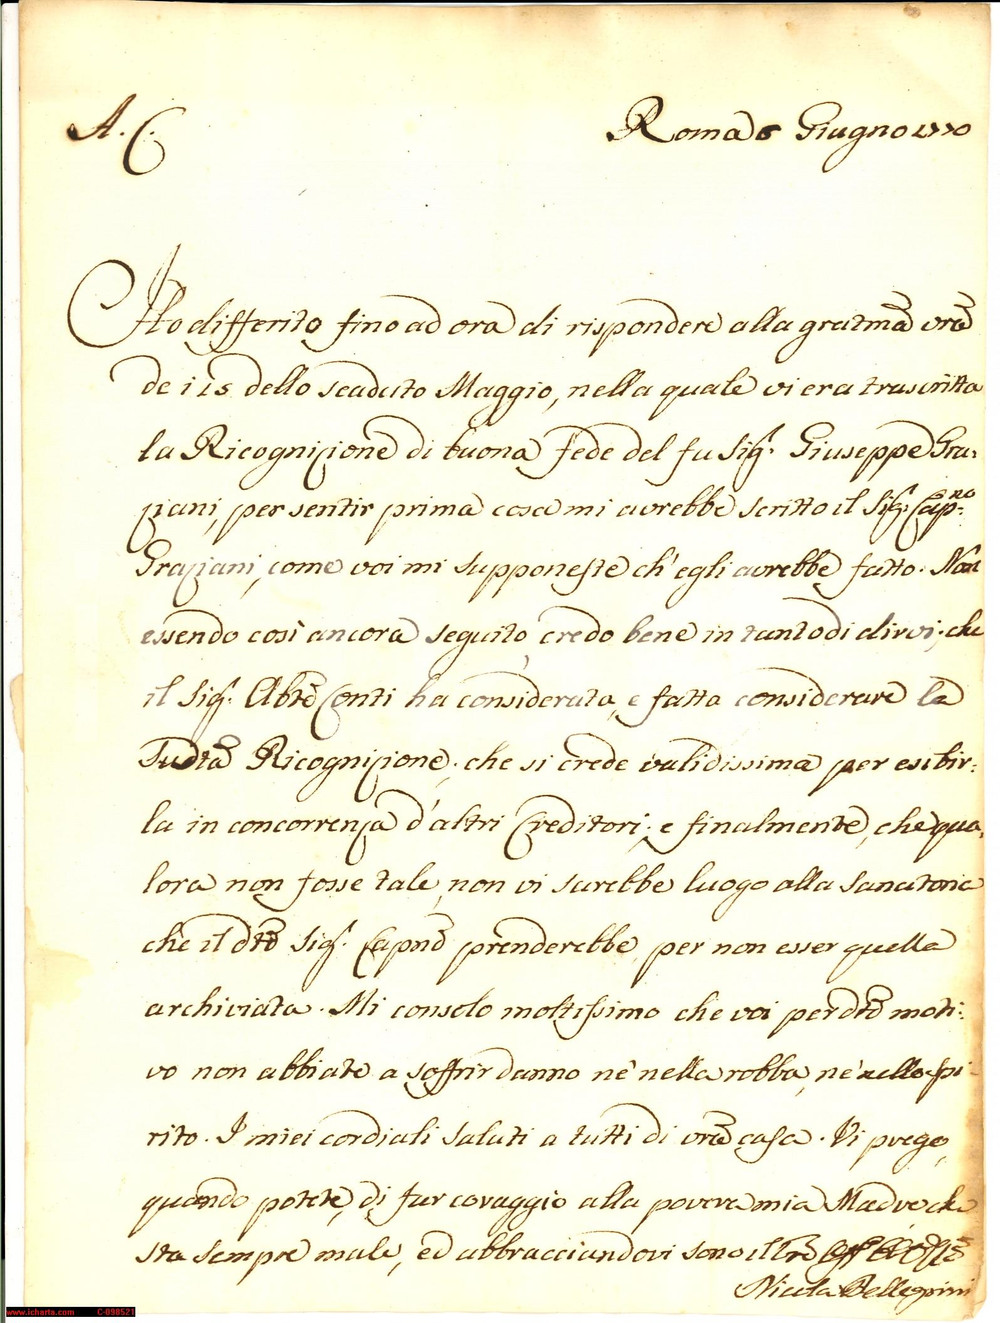 A. C.
Roma 6 Giugno 1770
Ho differito fino ad ora di rispondere alla gratma vra
de i 15 dello scaduto Maggio, nella quale vi era trascritta
la Ricognizione di buona Fede del fu Sig.r Giuseppe Gra:
ziani, per sentir prima cosa mi avrebbe scritto il Sig.r Capno
Graziani, come voi mi supponeste ch'egli avrebbe fatto. Non
essendo così ancora seguito, credo bene in tanto di dirvi, che
il Sig.r Abte Conti ha considerata, e fatta considerare la
Sudta Ricognizione, che si crede validissima per esibir:
la in concorrenza d'altri Creditori; e finalmente, che qua:
lora non fosse tale, non vi sarebbe luogo alla sanatoria
che il dto Sig.r Capno prenderebbe per non esser quella
archiviata. Mi consolo moltissimo che voi per dto moti:
vo non abbiate a soffrir danno nè nella robba, nè nello spi:
rito. I miei cordiali saluti a tutti di vra casa. Vi prego,
quando potete, di far coraggio alla povera mia Madre che
sta sempre male, ed abbracciandovi sono il vro
Nicola Pellegrini
www.icharta.com C-098521